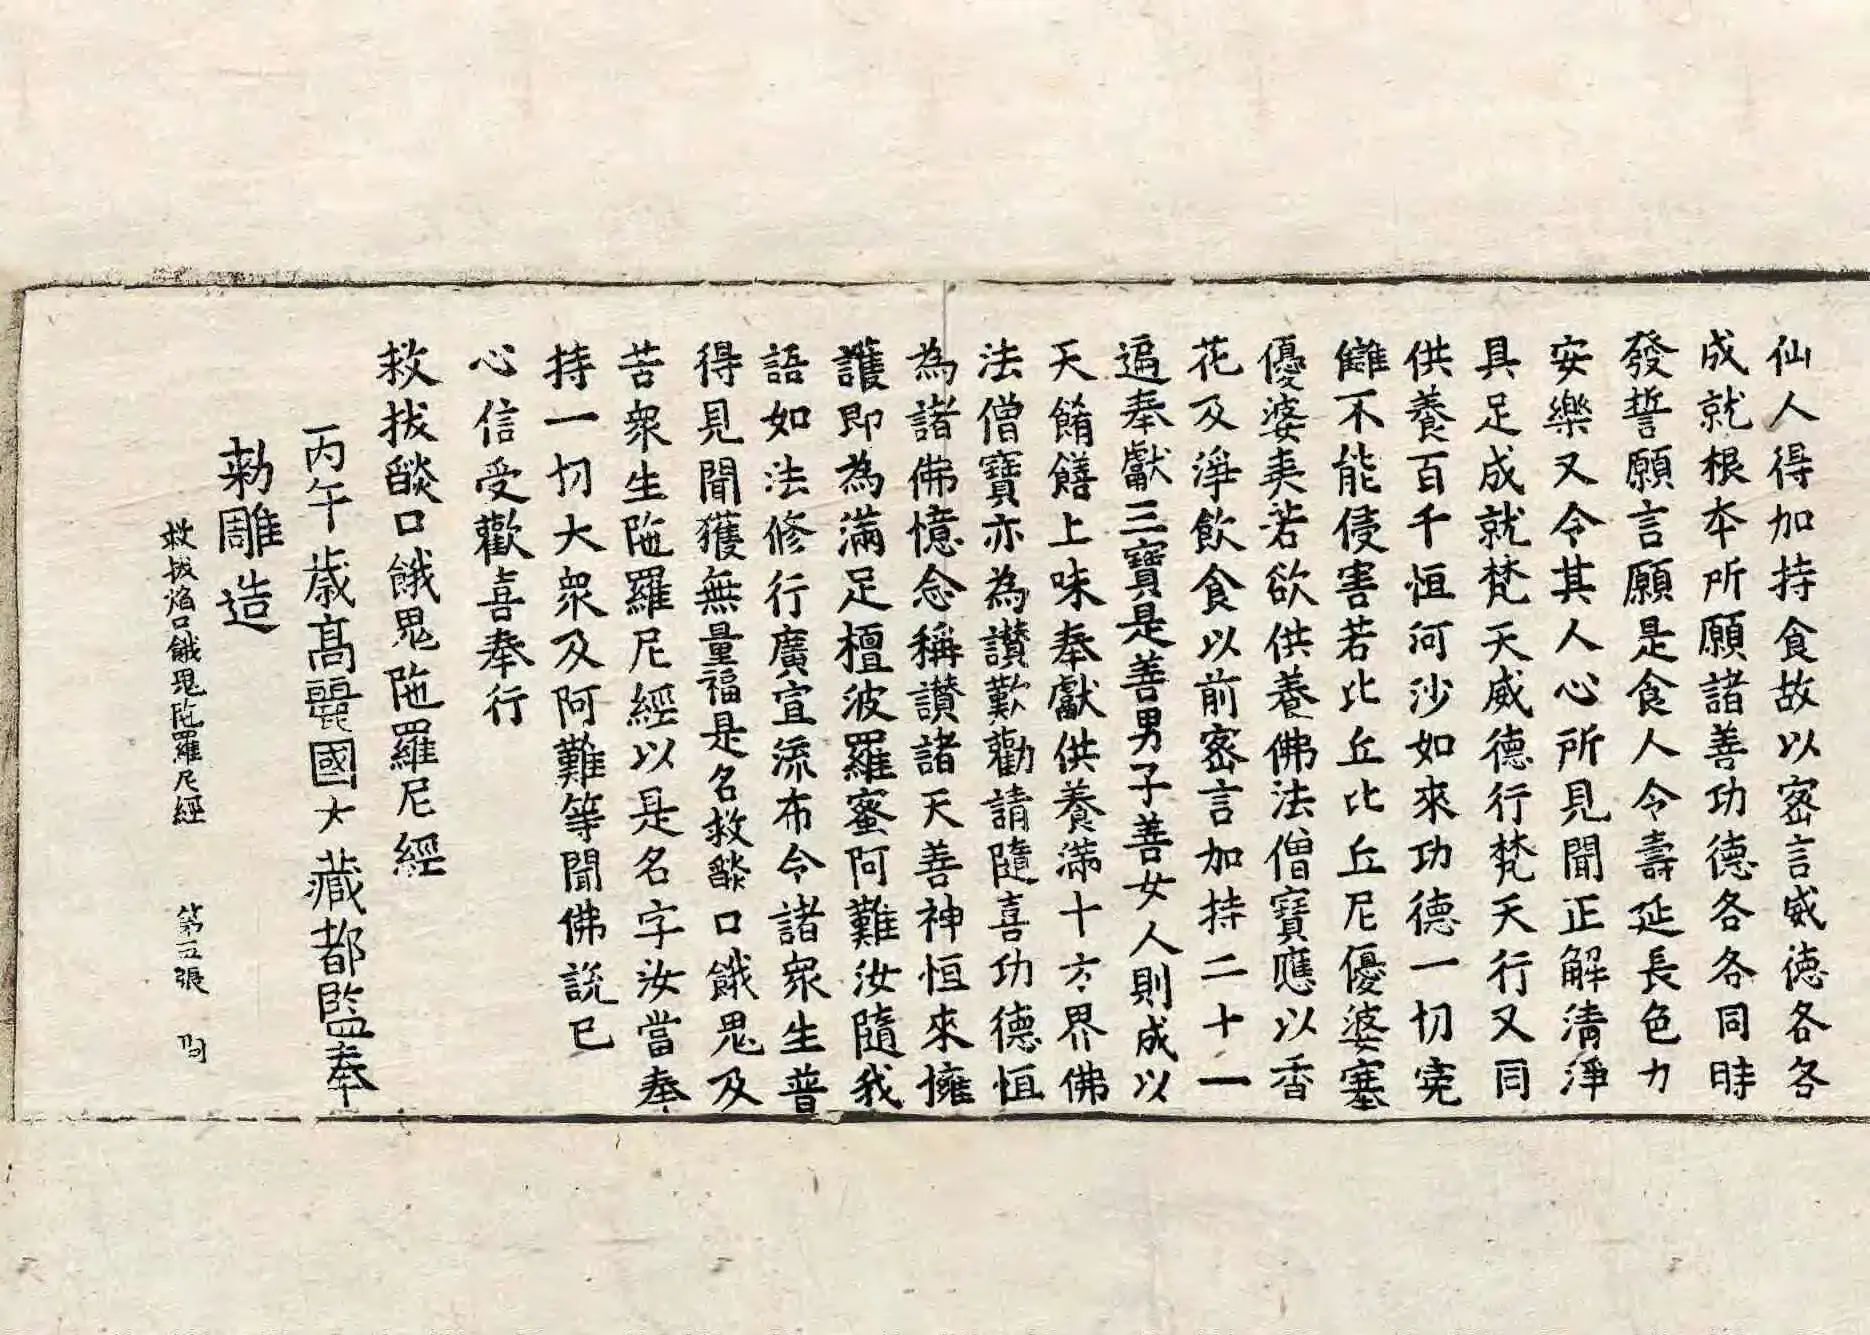 仙人得加持食故以宻言威徳各各
成就根夲所願諸善功德各各同時
發誓願言願是食人令壽延長色力
安樂又令其人心所見聞正解清淨
具足成就梵天威德行梵天行又同
供養百千恒河沙如來功德一切寃
讎不能侵害若比丘比丘尼優婆塞
優婆夷若欲供養佛法僧寶應以香
花及淨飲食以前宻言加持二十一
遍奉獻三寶是善男子善女人則成以
天餚饍上味奉獻供養滿十方界佛
法僧寶亦為讃歎勸請隨喜功德恒
為諸佛憶念稱讃諸天善神恒來擁
護即為滿足檀波羅蜜阿難汝隨我
語如法修行廣宣流布令諸衆生普
得見聞獲無量福是名救燄口餓鬼及
苦衆生陁羅尼經以是名字汝當奉
持一切大衆及阿難等聞佛說已
心信受歡喜奉行
救拔燄口餓鬼陁羅尼經
丙午歲高麗國大藏都監奉
勑雕造
救拔焰口餓鬼陁羅尼經 第五張